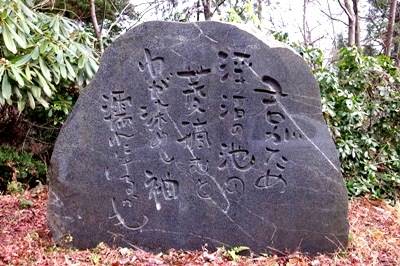 君がため
浮沼の池の
菱摘むと
わが染めし袖
濡れにけるかも